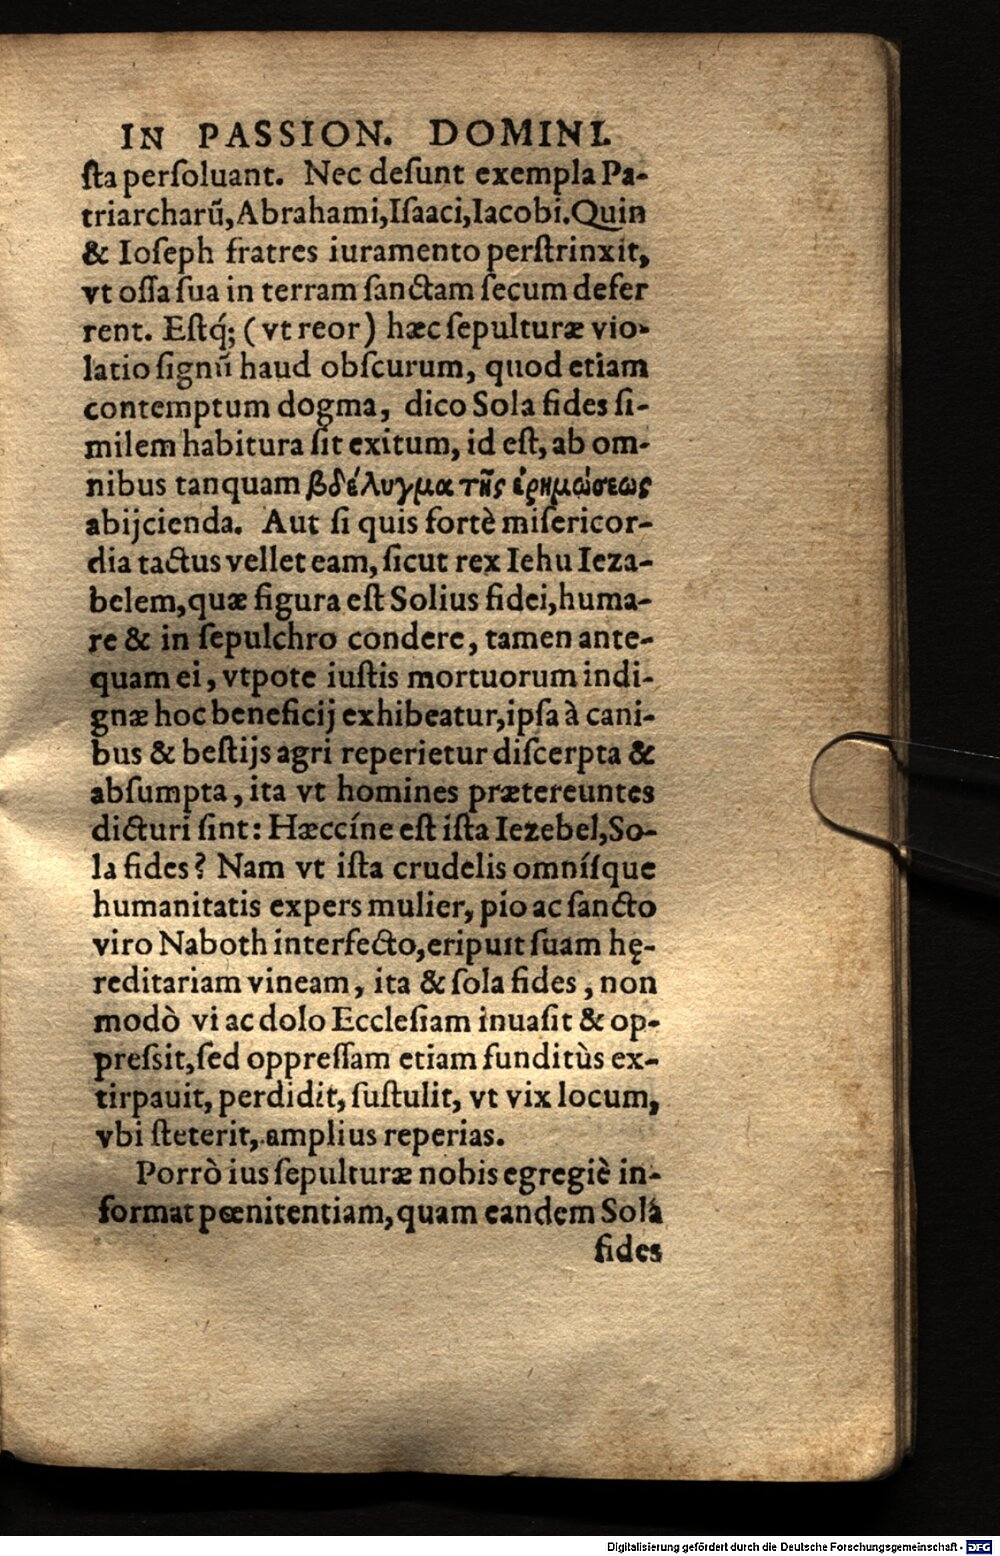 IN PASSION. DOMINI.
ſta perſoluant. Nec deſunt exempla Pa-
triarcharũ, Abrahami, Iſaaci, Iacobi. Quin
& Ioſeph fratres iuramento perſtrinxit,
vt oſſa ſua in terram ſanctam ſecum defer
rent. Eſtq́; (vt reor) hæc ſepulturæ vio-
latio ſignũ haud obſcurum, quod etiam
contemptum dogma, dico Sola fides ſi-
milem habitura ſit exitum, id eſt, ab om-
nibus tanquam βδέλυγμα τῆς ἐρημώσεως
abijcienda. Aut ſi quis fortè miſericor-
dia tactus vellet eam, ſicut rex Iehu Ieza-
belem, quæ figura eſt Solius fidei, huma-
re & in ſepulchro condere, tamen ante-
quam ei, vtpote iuſtis mortuorum indi-
gnæ hoc beneficij exhibeatur, ipſa à cani-
bus & beſtijs agri reperietur diſcerpta &
abſumpta, ita vt homines prætereuntes
dicturi ſint: Hæccíne eſt iſta Iezebel, So-
la fides? Nam vt iſta crudelis omníſque
humanitatis expers mulier, pio ac ſancto
viro Naboth interfecto, eripuit ſuam hę-
reditariam vineam, ita & ſola fides, non
modò vi ac dolo Eccleſiam inuaſit & op-
preſsit, ſed oppreſſam etiam funditùs ex-
tirpauit, perdidit, ſuſtulit, vt vix locum,
vbi ſteterit, amplius reperias.
Porrò ius ſepulturæ nobis egregiè in-
format pœnitentiam, quam eandem Sola
fides
Digitalisierung gefördert durch die Deutsche Forschungsgemeinschaft - DFG